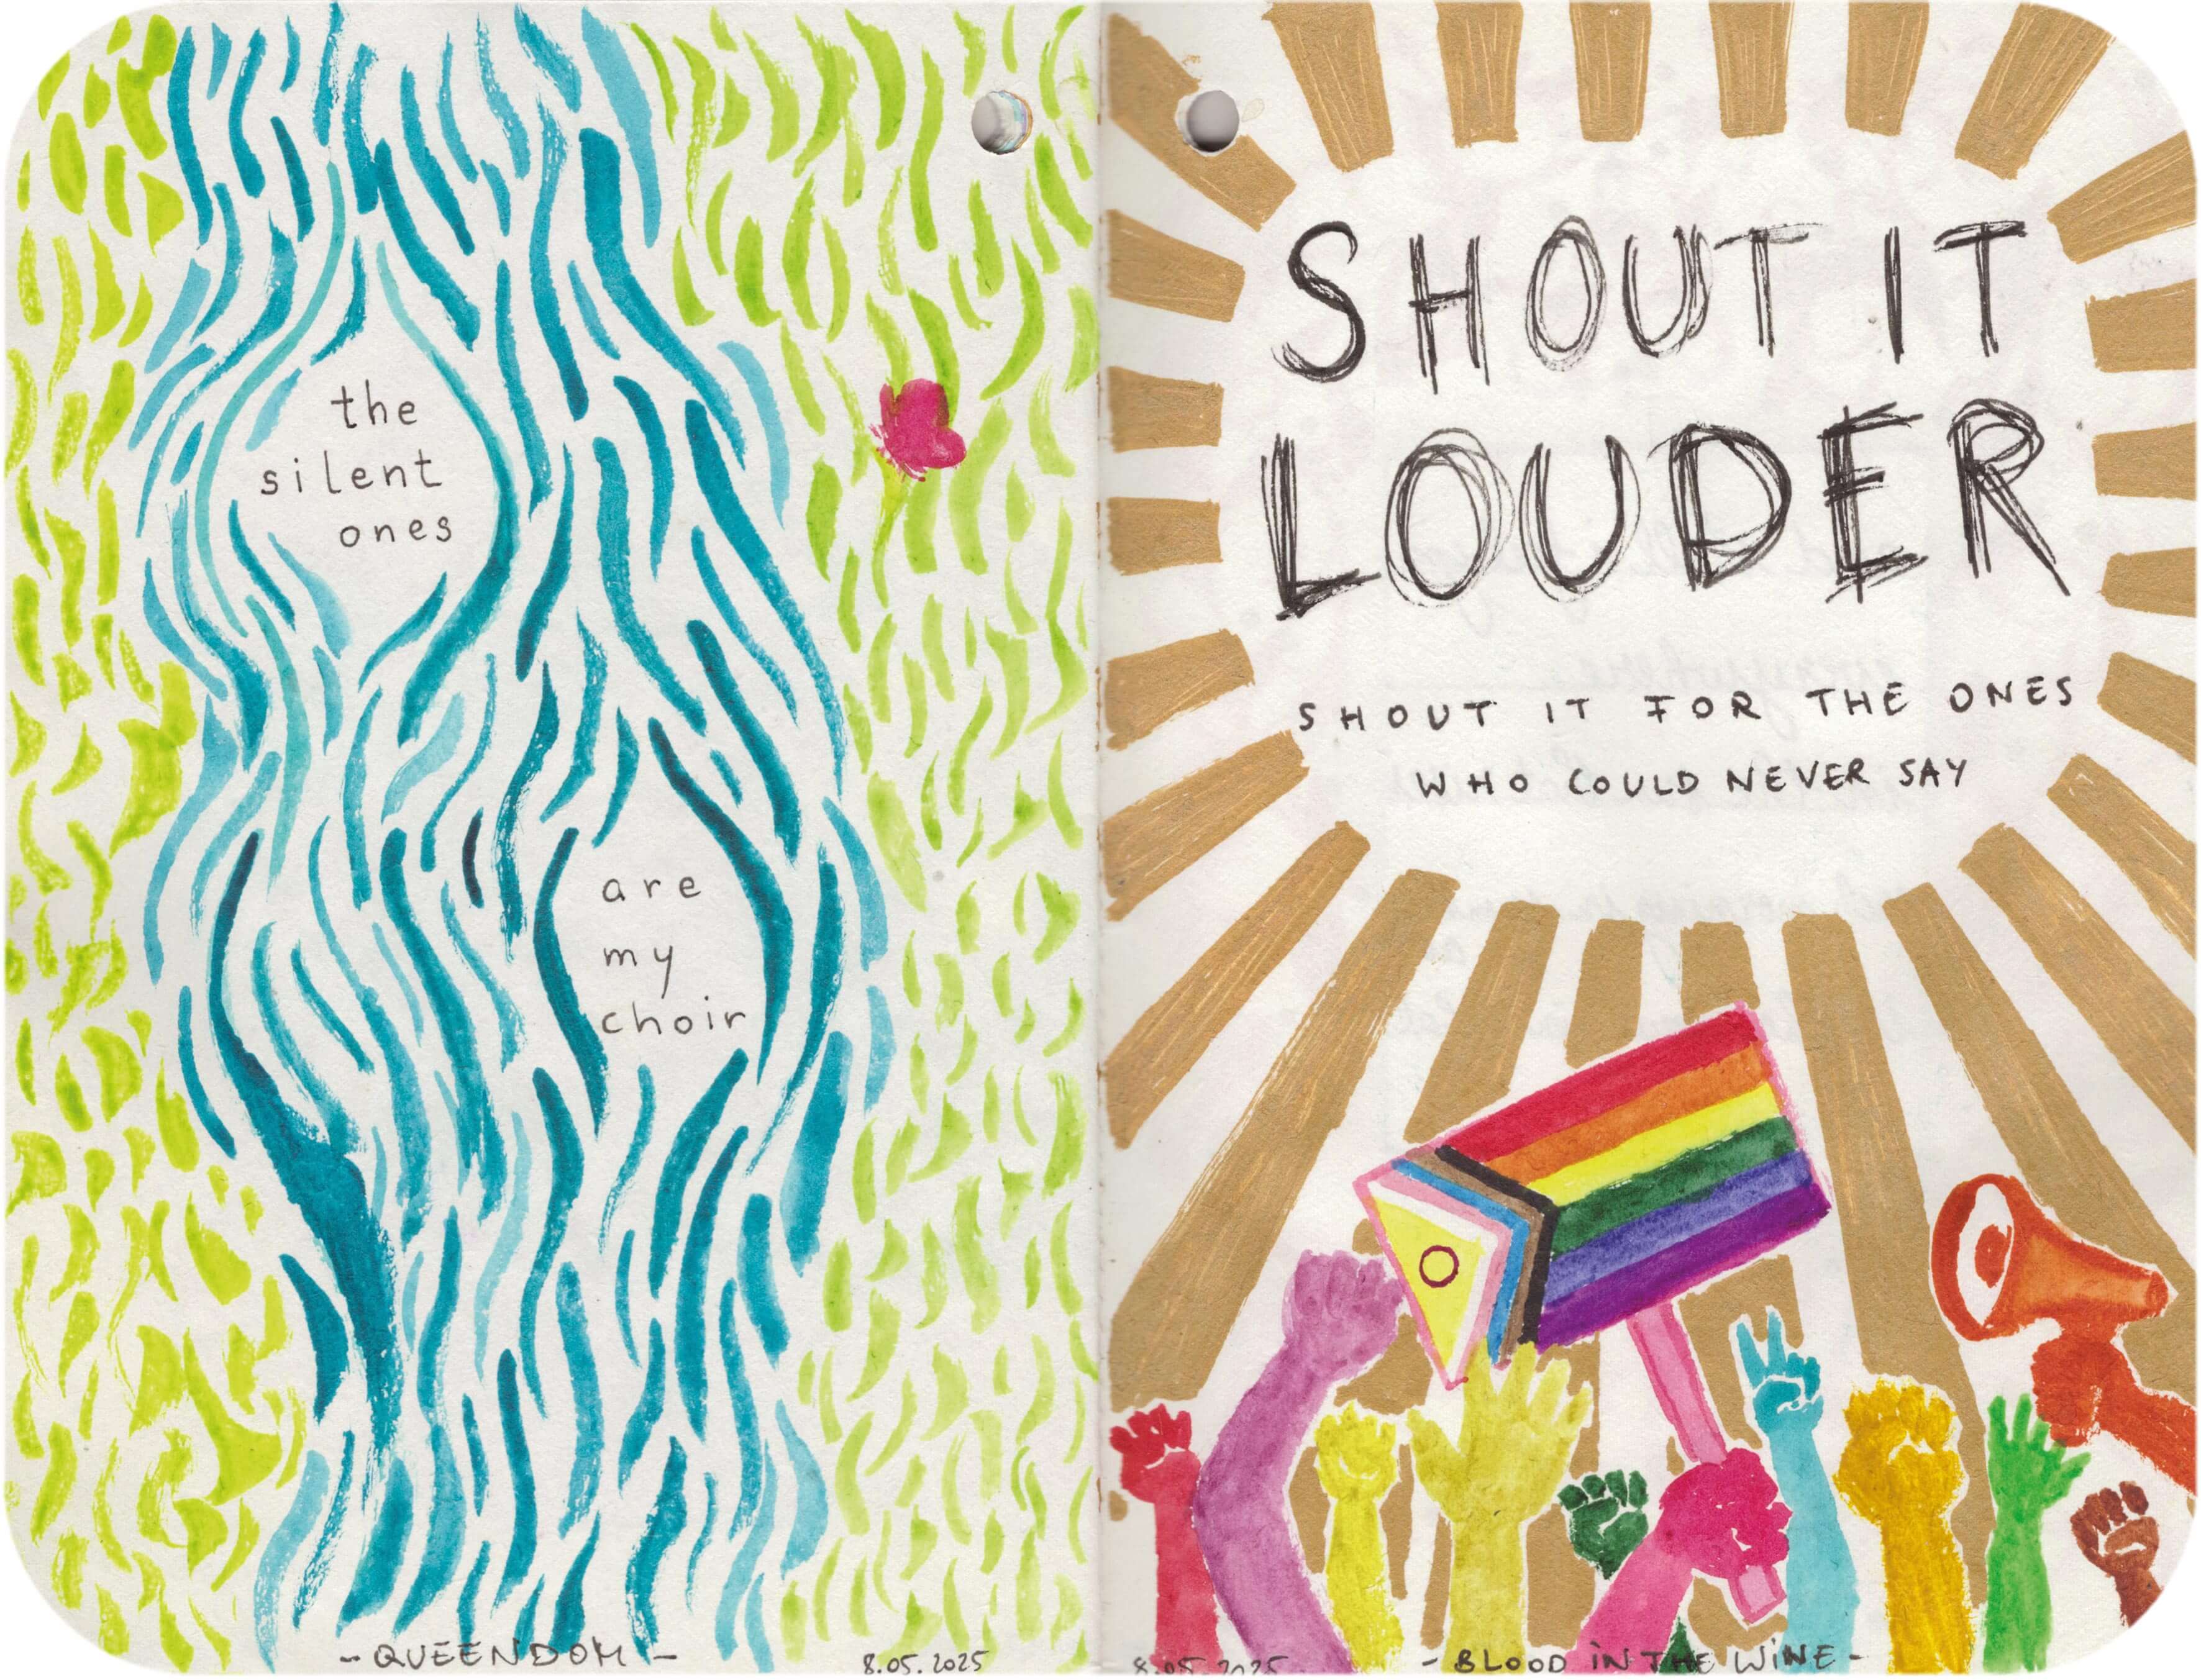 the
silent
ones
are
my
choir
- QUEENDOM -
8.05.2025
SHOUT IT
LOUDER
SHOUT IT FOR THE ONES
WHO COULD NEVER SAY
8.05.2025
- BLOOD IN THE WINE -